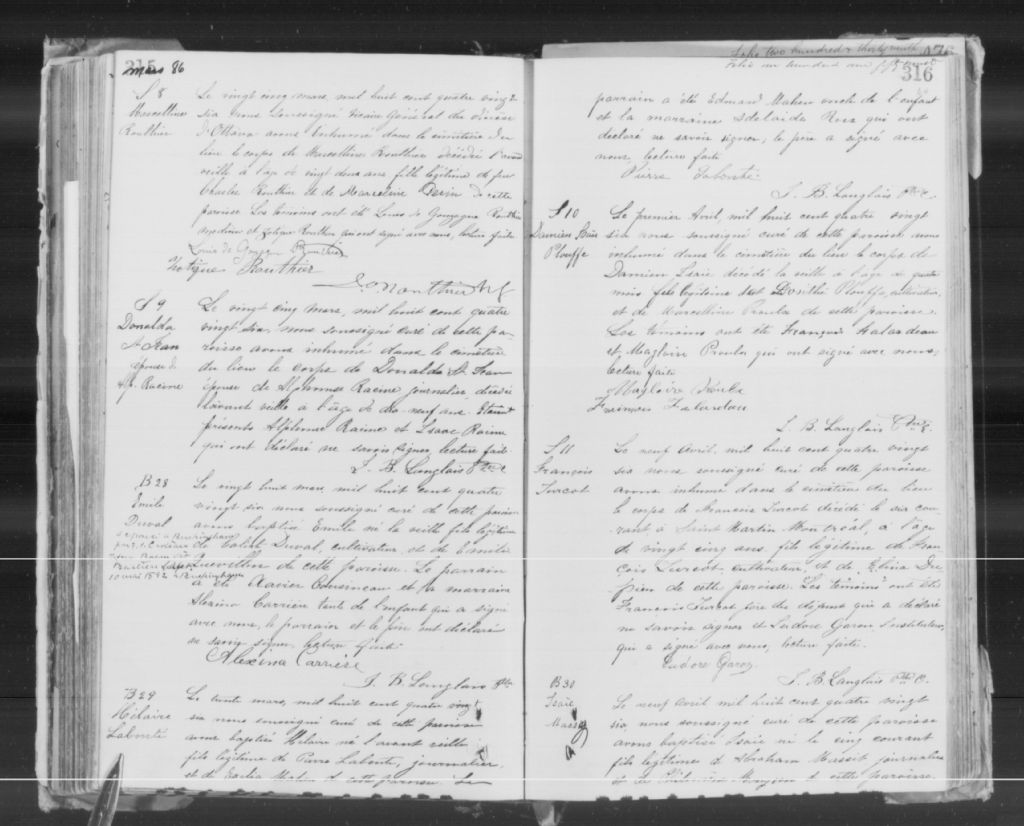 315
mars 86
S 8
Marcelline
Routhier
Le vingt cinq mars, mil huit cent quatre vingt
six nous soussigné Vicaire Général du diocèse
d'Ottawa avons inhumé dans le cimetière du
lieu le corps de Marcelline Routhier décédée l'avant
veille à l'age de vingt deux ans fille légitime de feu
Charles Routhier et de Marceline de cette
paroisse Les témoins ont été Louis de Gonzague Routhier
et Zotique Routhier qui ont signé avec nous, lecture faite
Louis de Gonzague Routhier
Zotique Routhier
J. O Routhier V G
S 9
Donalda
St Jean
épouse de
Alp. Racine
Le vingt cinq mars, mil huit cent quatre
vingt six, nous soussigné curé de cette pa-
roisse avons inhumé dans le cimetière
du lieu le corps de Donalda St Jean
épouse de Alphonse Racine journalier, décédée
l'avant veille à l'âge de dix-neuf ans. Etaient
présents Alphonse Racine et Isaac Racine
qui ont déclaré ne savoir signer, lecture faite
J. B. Langlais Ptre C
B 28
Emile
Duval
Le vingt huit mars, mil huit cent quatre
vingt six nous soussigné curé de cette paroisse
avons baptisé Emile né la veille fils légitime
de Duval, cultivateur, et de
de cette paroisse. Le parrain
a été Xavier Cousineau et la marraine
Alexina Carrière tante de l'enfant qui a signé
avec nous, le parrain et le père ont déclaré
ne savoir signer, lecture faite
Alexina Carrière
J. B. Langlais Ptre
B 29
Hilaire
Labonté
Le trente mars, mil huit cent quatre vingt
six nous soussigné curé de cette paroisse
avons baptisé Hilaire né l'avant veille
fils légitime de Pierre Labonté, journalier,
et de Mahen de cette paroisse. Le
Folio two hundred & thirty ninth
316
parrain a été Edmard Mahen oncle de l'enfant
et la marraine Adelaide Ross qui ont
déclaré ne savoir signer, le père a signé avec
nous, lecture faite
Pierre Labonté
J. B. Langlais Ptre C.
S 10
Damien Isaie
Plouffe
Le premier Avril, mil huit cent quatre vingt
six nous soussigné curé de cette paroisse avons
inhumé dans le cimetière du lieu le corps de
Damien Isaie décédé la veille à l'age de quatre
mois fils légitime de Plouffe, cultivateur,
et de Marcelline Proulx de cette paroisse.
Les témoins ont été François Falardeau
et Magloire Proulx qui ont signé avec nous,
lecture faite
Magloire Proulx
François Falardeau
J. B. Langlais Ptre C.
S 11
François
Turcot
Le neuf Avril, mil huit cent quatre vingt
six nous soussigné curé de cette paroisse
avons inhumé dans le cimetière du lieu
le corps de François Turcot décédé le six cou-
rant à Saint Martin Montréal, à l'age
de vingt cinq ans fils légitime de Fran-
çois Turcot, cultivateur, et de Eliza
de cette paroisse. Les témoins ont été
François Turcot père du défunt qui a déclaré
ne savoir signer et Isidore Garon instituteur,
qui a signé avec nous, lecture faite.
Isidore Garon
J. B. Langlais Ptre C.
B 30
Isaie
Massy
Le neuf Avril mil huit cent quatre vingt
six, nous soussigné curé de cette paroisse
avons baptisé Isaie né le cinq courant
fils légitime d'Abraham Massit journalier
et de de cette paroisse.